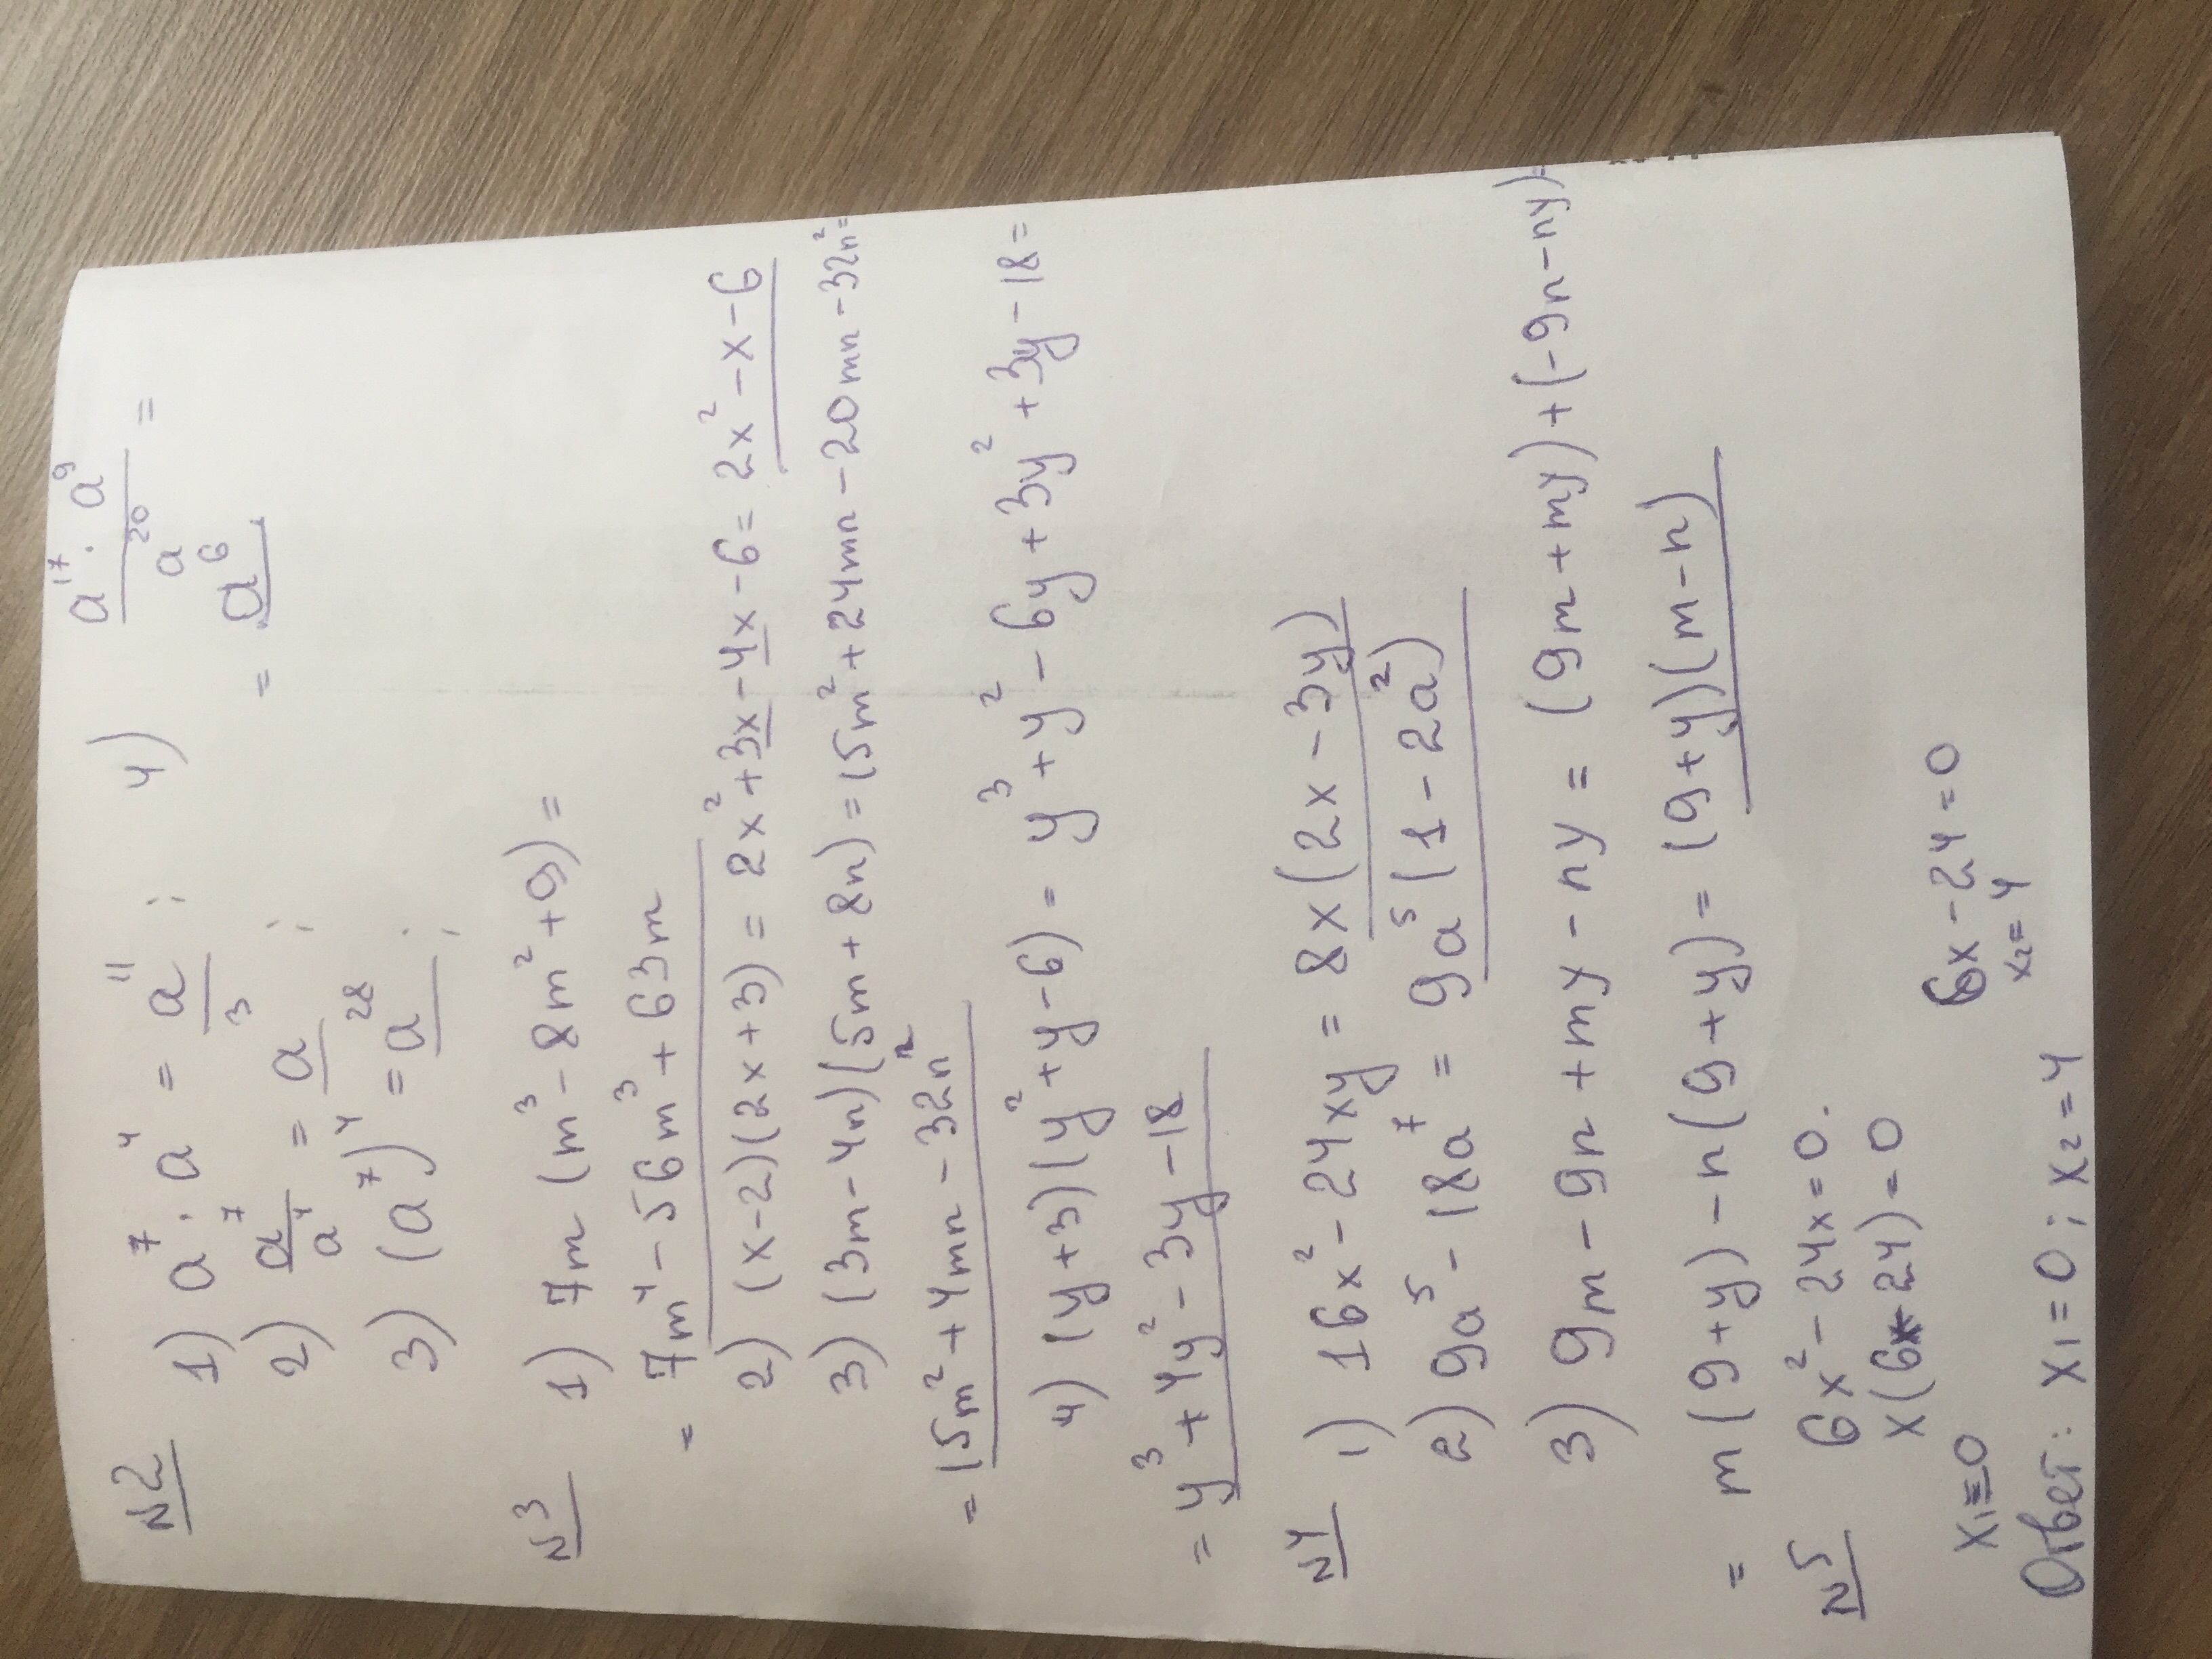 N2 1) a⁷ · a⁴ = a¹¹ ; 4) a¹⁷ · a⁹ / a²⁰ =
2) a⁷ / a⁴ = a³ ; = a⁶
3) (a⁷)⁴ = a²⁸ ;
N3 1) 7m (m³ - 8m² + 9) =
= 7m⁴ - 56m³ + 63m
2) (x-2)(2x+3) = 2x² + 3x - 4x - 6 = 2x² - x - 6
3) (3m - 4n)(5m + 8n) = 15m² + 24mn - 20mn - 32n² =
= 15m² + 4mn - 32n²
4) (y+3)(y² + y - 6) = y³ + y² - 6y + 3y² + 3y - 18 =
= y³ + 4y² - 3y - 18
N4 1) 16x² - 24xy = 8x(2x - 3y)
2) 9a⁵ - 18a⁷ = 9a⁵(1 - 2a²)
3) 9m - 9n + my - ny = (9m + my) + (-9n - ny) =
= m(9+y) - n(9+y) = (9+y)(m-n)
N5 6x² - 24x = 0.
x(6x - 24) = 0
x₁ = 0 6x - 24 = 0
x₂ = 4
Ответ: x₁ = 0 ; x₂ = 4